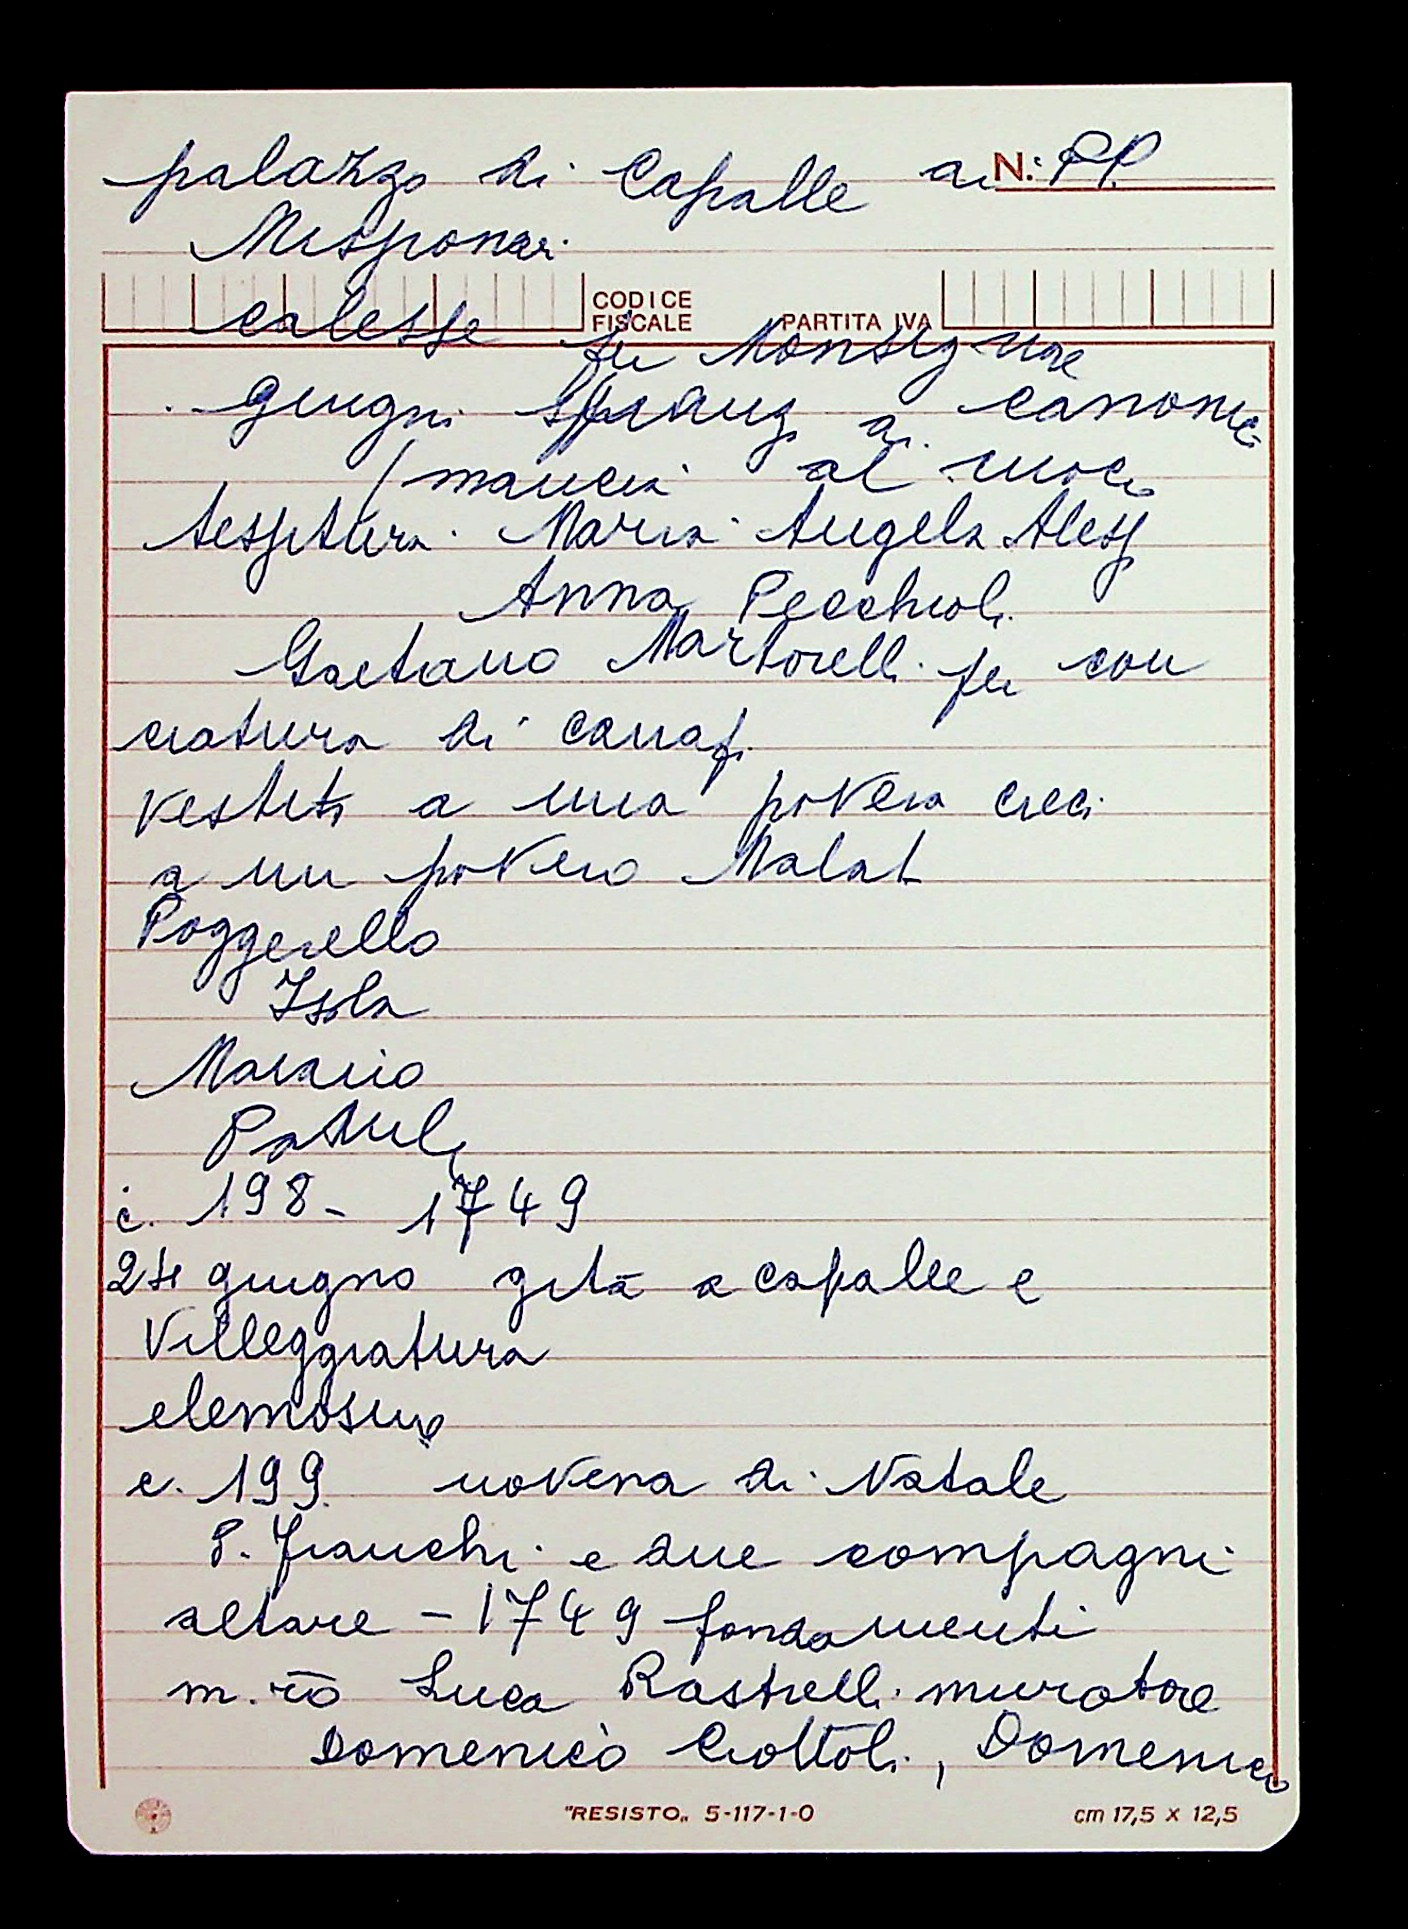 palazzo di Capalle ai N: PP.
Missionari
calesse CODICE FISCALE PARTITA IVA
fu Monsignore
Giugni a canonici
mancia al
tessitura Maria Angela Aless
Anna Pecchioli
Gaetano Martorelli per con
ciatura di canapi
vestiti a una povera
a un povero Malat
Poggerello
Isola
Patule
c. 198 - 1749
24 giugno gita a Capalle e
Villeggiatura
elemosine
c. 199 novena di Natale
P. Franchi e due compagni
altare - 1749 fondamenti
m.ro Luca Rastrelli muratore
Domenico Ciottoli, Domenico
"RESISTO" 5-117-1-0 cm 17,5 x 12,5